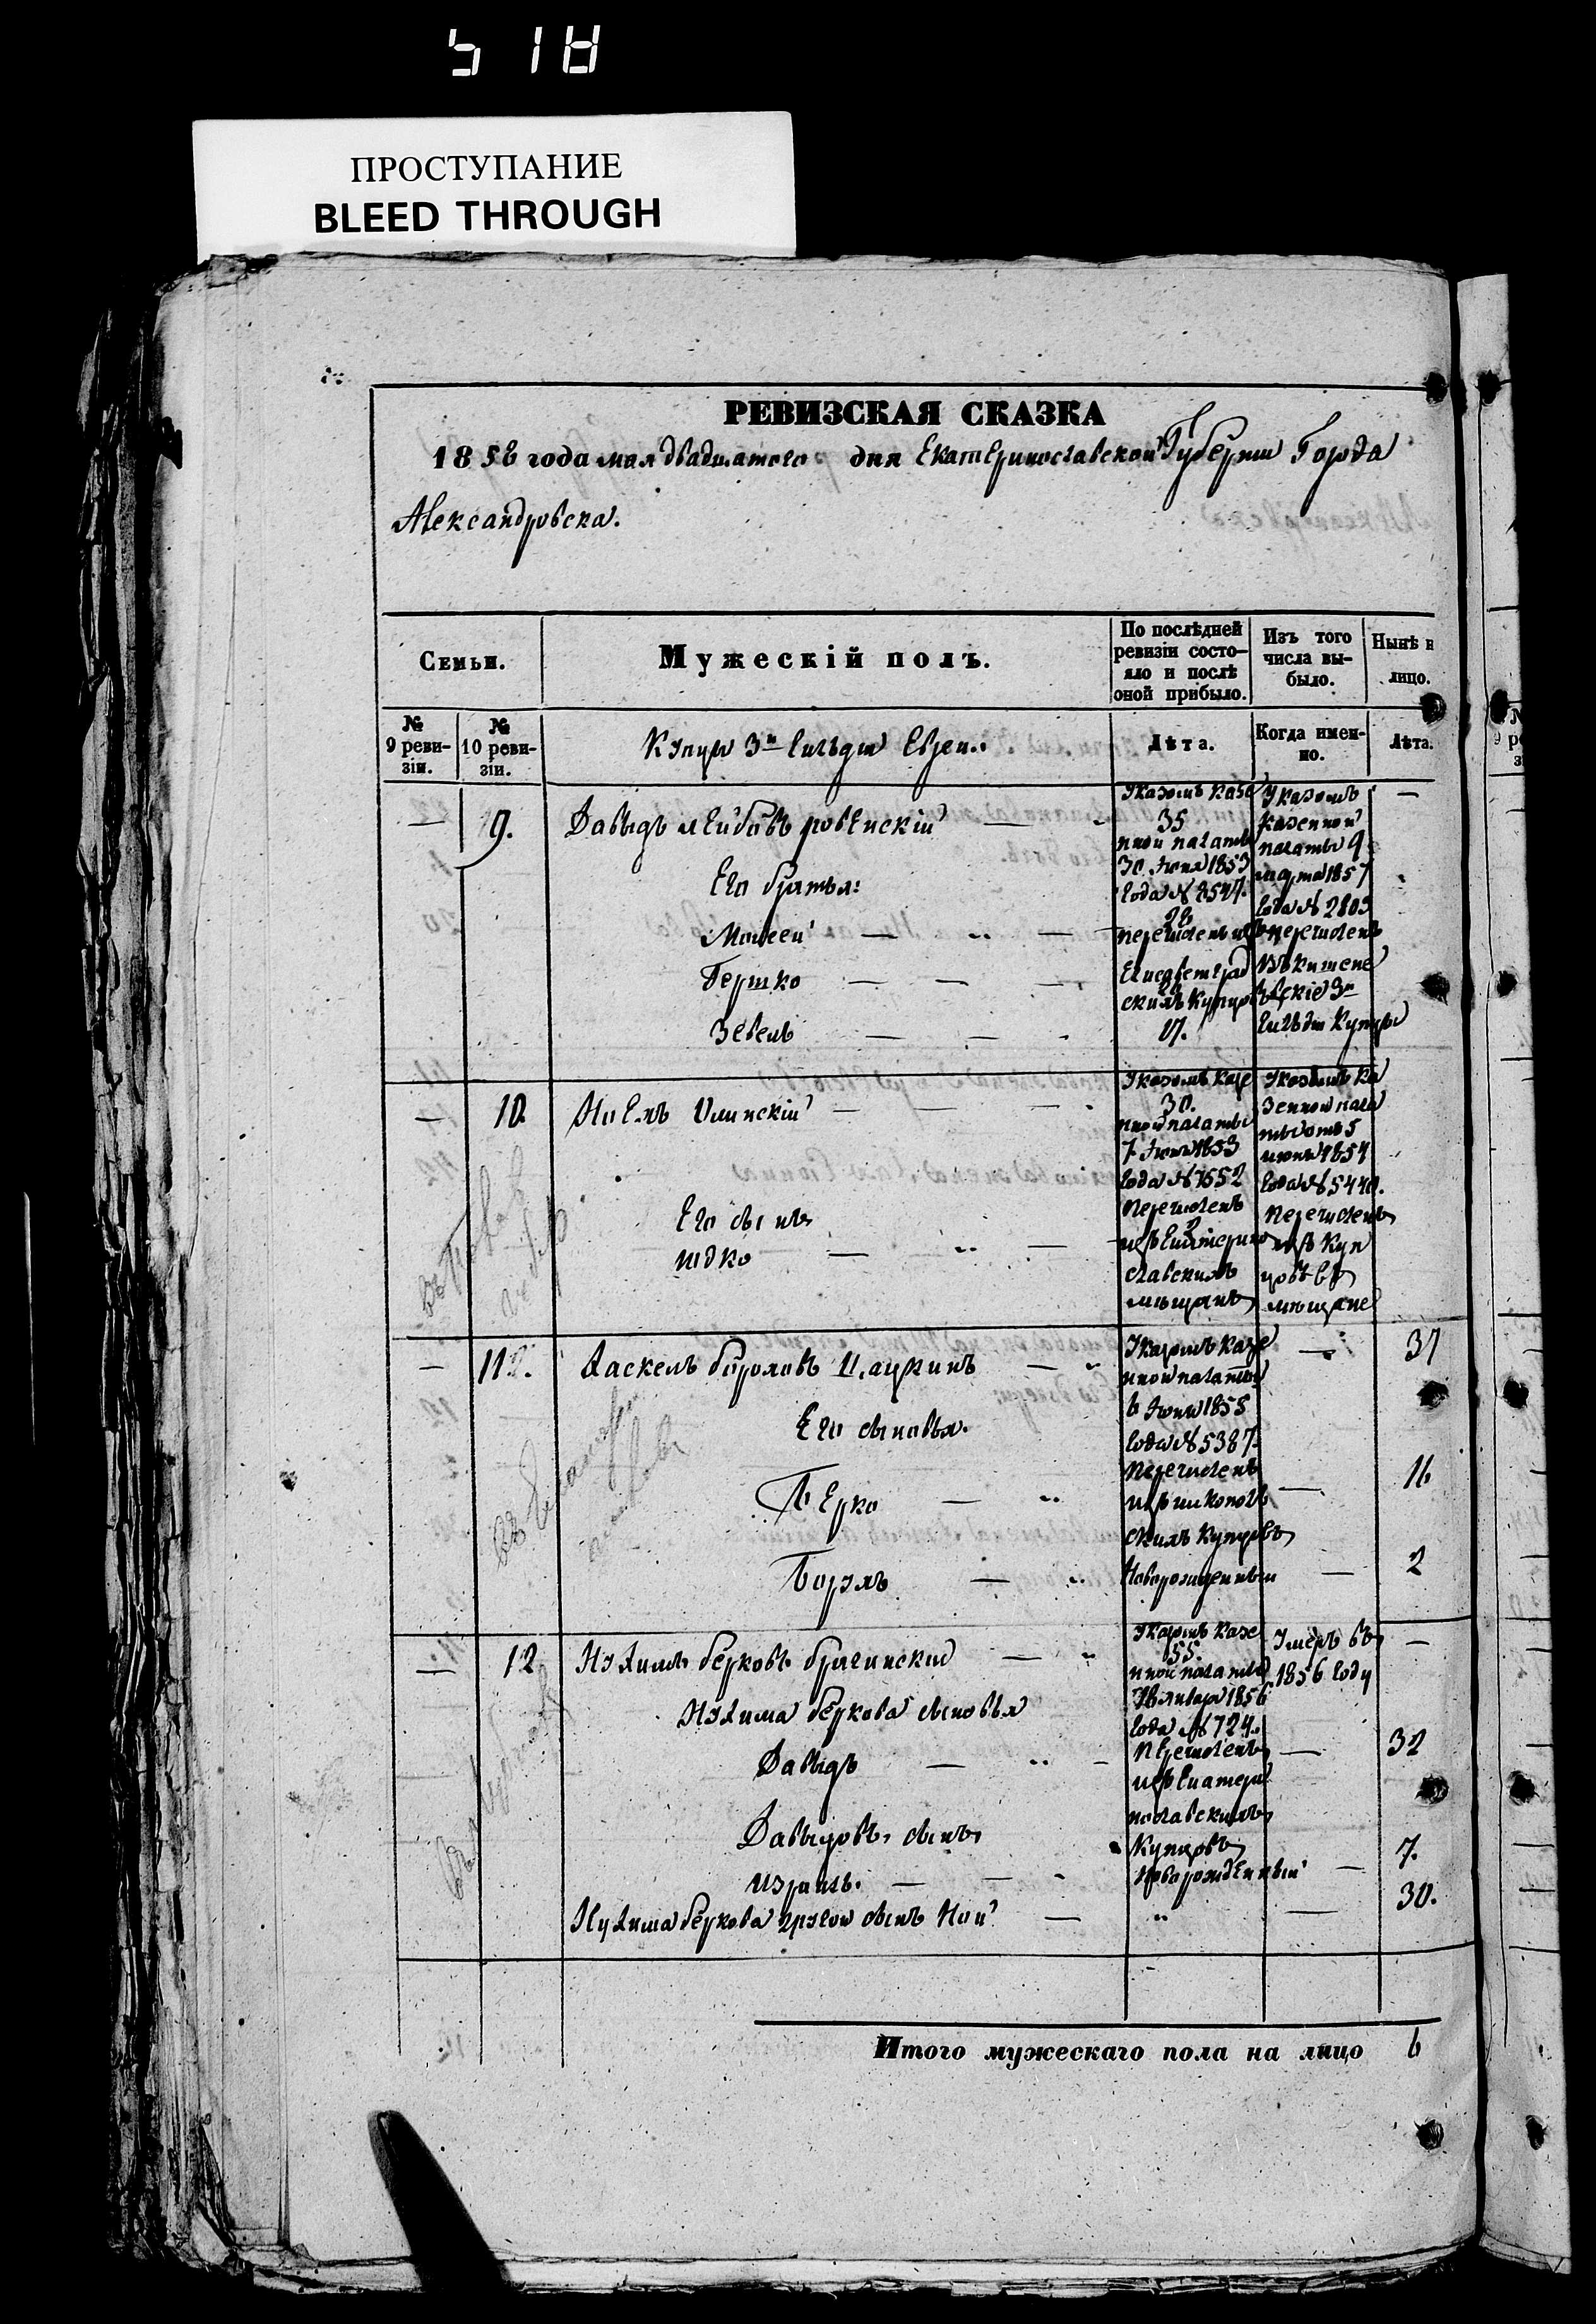 518
ПРОСТУПАНИЕ
BLEED THROUGH
РЕВИЗСКАЯ СКАЗКА
1858 года мая двадцатого дня Екатеринославской Губерніи Города
Александровска.
Семьи.
Мужескій полъ.
По послѣдней
ревизіи состо-
яло и послѣ
оной прибыло.
Изъ того
числа вы-
было.
Нынѣ н
лицо.
№
9 реви-
зіи.
№
10 реви-
зіи.
Купцы 3й Гильдіи Евреи.
Лѣта.
Когда имен-
но.
Лѣта.
— 9. Давыдъ Лейбовъ
Его братья:
Мошей
Гершко
Зевель
Указомъ казе
35
нной палаты
30 Іюня 1853
Года № 8547.
28
перечисленъ изъ
Елисаветград
скихъ купцовъ
17.
Указомъ
казенной
палаты 9
марта 1857
Года № 2803
перечислены
въ Кишене
вскіе 3й
Гильдіи купцы
—
— 10
Его сынъ
Указомъ казе
30.
нной палаты
7 Іюня 1853
Года № 7652
перечисленъ
изъ Екатерино
славскихъ
мѣщанъ
Указомъ ка
зенной пала
ты отъ 5
іюня 1857
Года № 5440.
перечисленъ
изъ куп
цовъ въ
мѣщане
— 11. Хаскель
Его сыновья.
Берко
Борухъ
Указомъ казе
нной палаты
6 Іюня 1858
Года № 5387.
перечисленъ
изъ никополь
скихъ купцовъ
Новорожденный
—
—
—
37
16
2
— 12 Нухимъ Берковъ Брагинскій
Нухима Беркова сыновья
Давыдъ
Давыдовъ сынъ
Израиль.
Нухима Беркова другой сынъ Ной
Указомъ казе
55.
нной палаты
18 Января 1856
Года № 724.
перечисленъ
изъ Екатери
нославскихъ
купцовъ
Новорожденный
"
Умеръ въ
1856 Году
—
32
7.
30.
Итого мужескаго пола на лицо 6